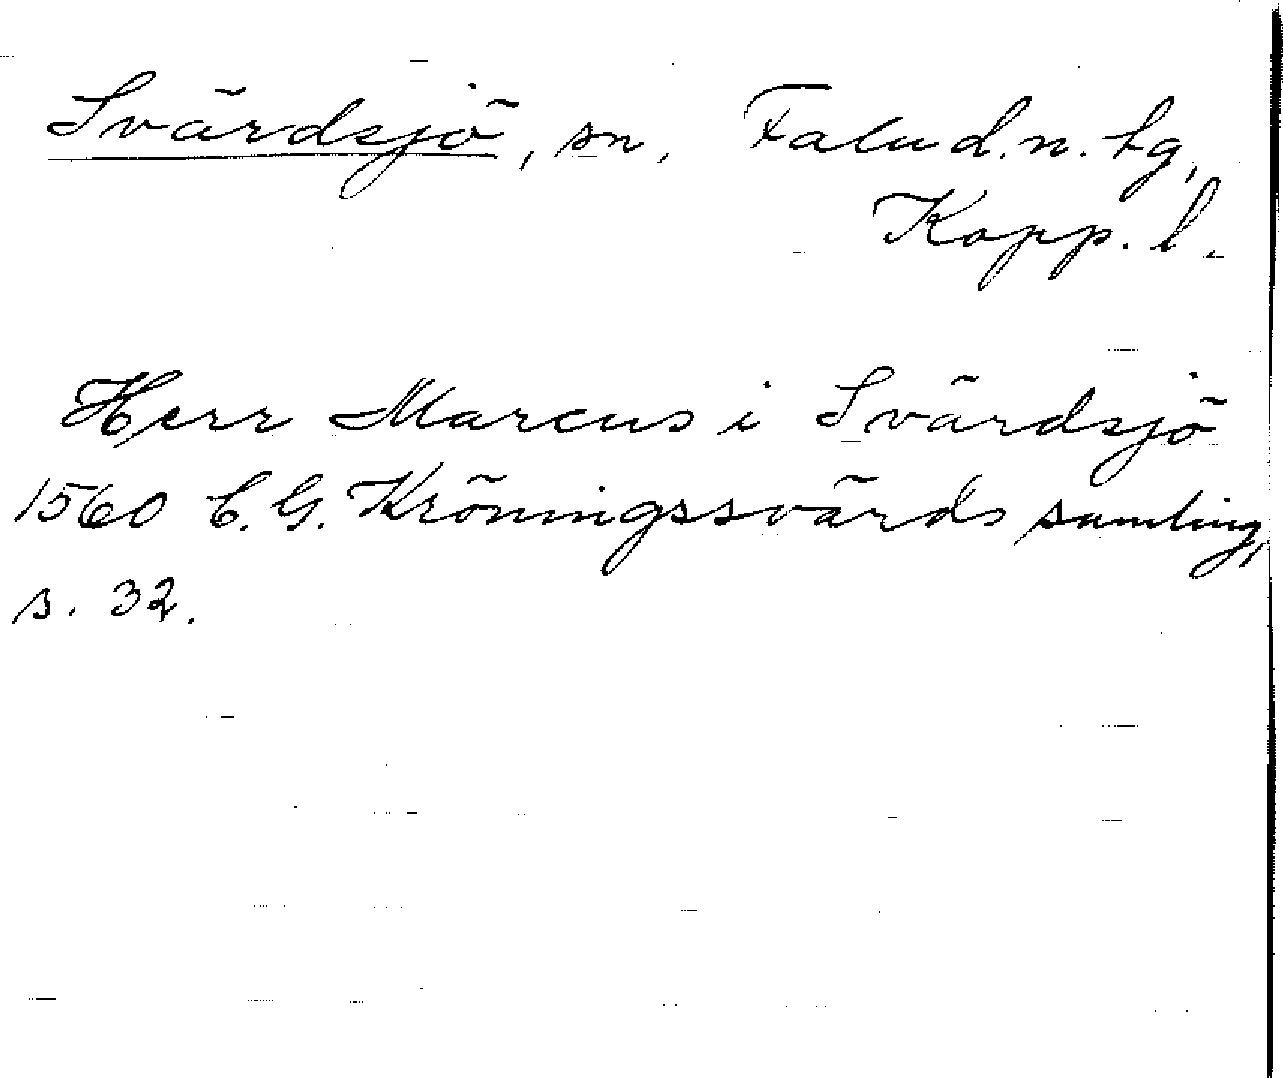 Svärdsjö, sn, Falu d.n. tg,
Kopp. l.
Herr Marcus i Svärdsjö
1560 C. G. Kröningssvärds samling,
s. 32.